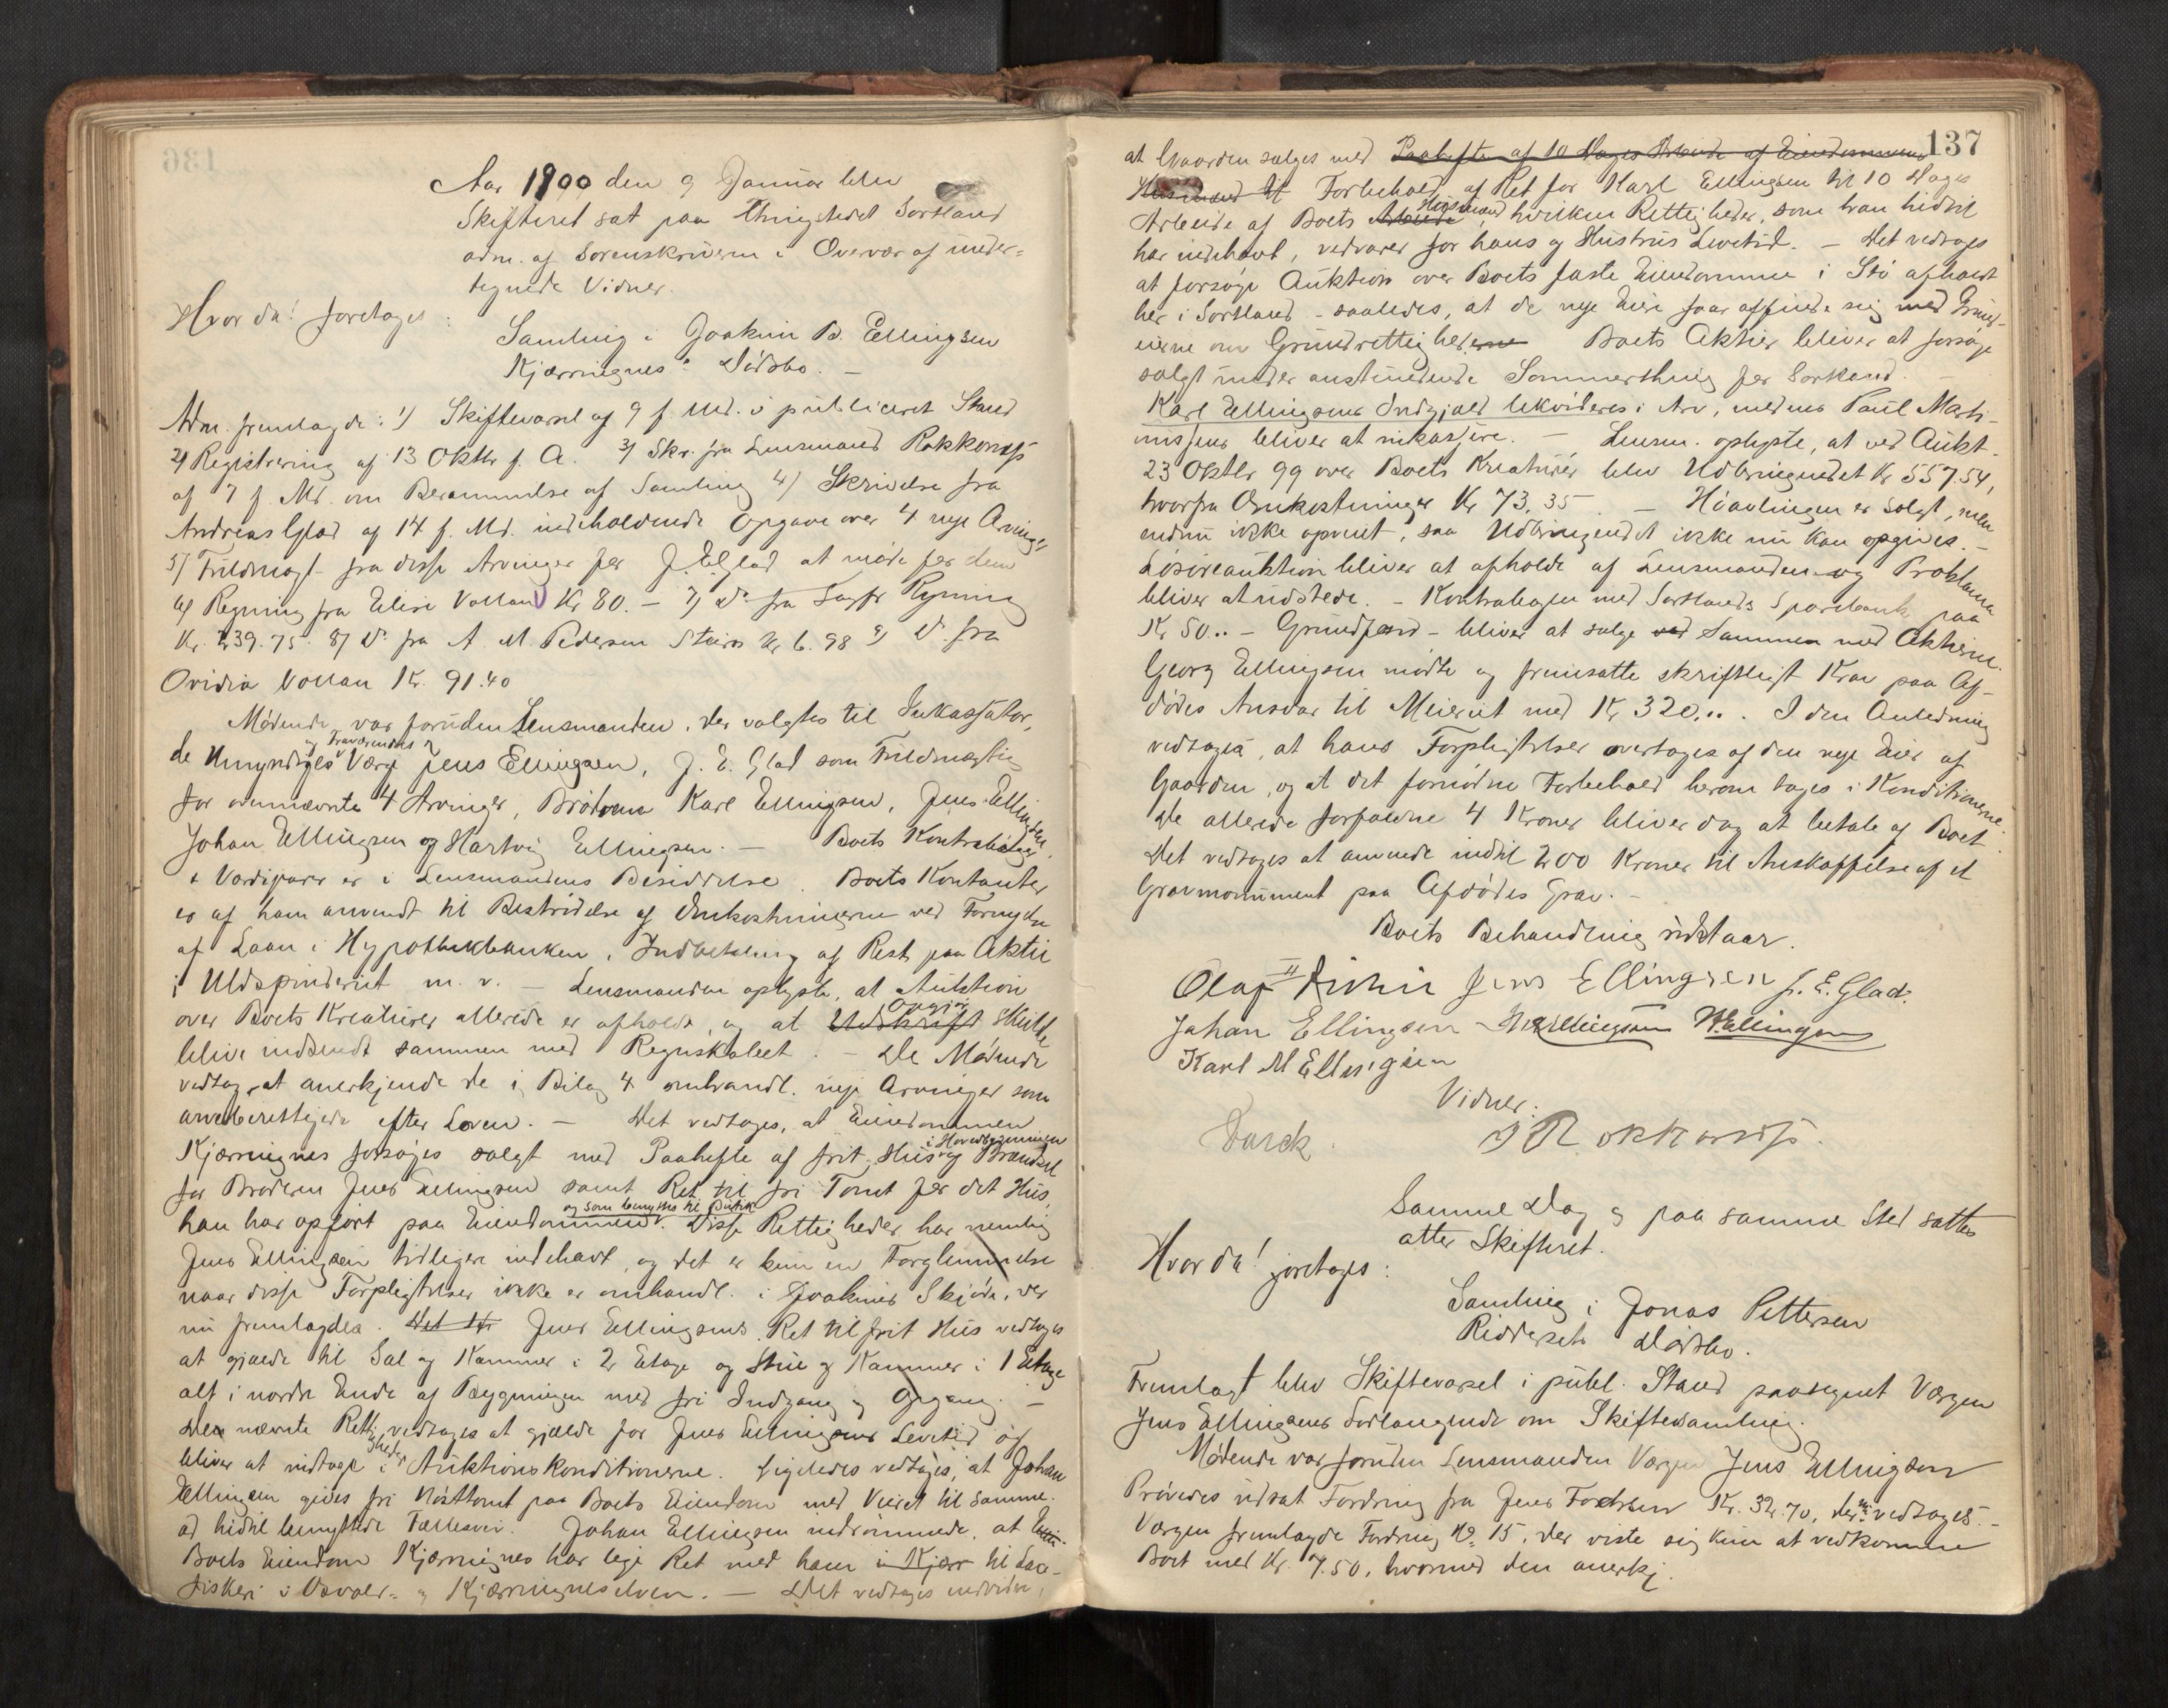 136
Aar 1900 den 9 Januar blev
Skifteret sat paa Thingstedet Sortland
adm. af Sorenskriveren i Overvær af under-
tegnede Vidner.
Hvor da! foretages:
Samling i Joakim B. Ellingsen
Kjærringnes's Dödsbo. —
Adm. fremlagde: 1) Skiftevarsel af 9 f. Md. i publiceret Stand
2) Registrering af 13 Oktbr f. A. 3) Skr. fra Lensmand Rokkones
af 7 f. Md. om Berammelse af Samling 4) Skrivelse fra
Andreas Glad af 14 f. Md. indeholdende Opgave over 4 nye Arvinger
5) Fuldmagt fra disse Arvinger for J. E. Glad at möde for dem
6) Regning fra Elise Vollan Kr 80. — 7) Do fra Regning
Kr. 239.75. 8) Do fra A. M. Pedersen Kr 6.98 9) Do fra
Ovidia Vollan Kr. 91.40
Mödende var foruden Lensmanden, der valgtes til Inkassator,
de Umyndiges og Fraværendes Værge Jens Ellingsen, J. E. Glad som Fuldmægtig
for ovennævnte 4 Arvinger, Brödrene Karl Ellingsen, Jens Ellingsen,
Johan Ellingsen og Hartvig Ellingsen. — Boets Kontraböger
& Værdipapir er i Lensmandens Besiddelse. Boets Kontanter
er af ham anvendt til Bestridelse af Omkostningerne ved Fornyelse
af Laan i Hypothekbanken, Indbetaling af Rest paa Aktie
i Uldspinderiet m. v. — Lensmanden oplyste, at Auktion
over Boets Kreaturer allerede er afholdt, og at Udskrift Opgjör skulde
blive indsendt sammen med Regnskabet. — De Mödende
vedtog at anerkjende de i Bilag 4 omhandl. nye Arvinger som
arveberettigede efter Loven. — Det vedtages, at Eiendommen
Kjærringnes forsöges solgt med Paahefte af frit Hus i Hovedbygningen og Brændsel
for Broderen Jens Ellingsen samt Ret til fri Tomt for det Hus
han har opfört paa Eiendommen og som benyttes til Butik. Disse Rettigheder har nemlig
Jens Ellingsen tidligere indehavt, og det er kun en Forglemmelse
naar disse Forpligtelser ikke er omhandl. i Joakims Skjöde, der
nu fremlagdes. Det Jens Ellingsens Ret til frit Hus vedtages
at gjælde til Sal og Kammer i 2 Etage og Stue og Kammer i 1 Etage
alt i nordre Ende af Bygningen med fri Indgang og Opgang. —
Den nævnte Rettigheder vedtages at gjælde for Jens Ellingsens Levetid og
bliver at indtage i Auktionskonditionerne. Ligeledes vedtages, at Johan
Ellingsen gives fri Nösttomt paa Boets Eiendom med Veiret til samme
ad hidtil benyttede Fællesvei. Johan Ellingsen indrömmede, at
Boets Eiendom Kjærringnes har lige Ret med ham i Kjær til Lax-
fiskeri i og Kjærringneselven. — Det vedtages endvidere,
137
at Gaarden sælges med Paahefte af 10 Dages Arbeide af Eiendommens
Husmand til Forbehold af Ret for Karl Ellingsen til 10 Dages
Arbeide af Boets Arbeide Husmænd, hvilken Rettigheder, som han hidtil
har indehavt, vedvarer for hans og Hustrus Levetid. — Det vedtages
at forsöge Auktion over Boets faste Eiendomme i Stö afholdt
her i Sortland – saaledes, at de nye Eiere faar affinde sig med Grund-
eierne om Grundrettighederne Boets Aktier bliver at forsöge
solgt under anstundende Sommerthing for Sortland. —
Karl Ellingsens Indgjæld likvideres i Arv, medens Paul Marti-
nussens bliver at inkassere. — Lensm. oplyste, at ved Aukt.
23 Oktbr 99 over Boets Kreaturer blev Udbringendet Kr 557.54,
hvorfra Omkostninger Kr 73.35. — Höavlingen er solgt, men
endnu ikke opveiet, saa Udbringendet ikke nu kan opgives. —
Lösöreauktion bliver at afholde af Lensmanden og Proklama
bliver at udstede. — Kontrabogen med Sortlands Sparebank paa
Kr 50.. – Grundfond – bliver at sælge ved Sammen med Aktierne.
Georg Ellingsen mödte og fremsatte skriftligt Krav paa Af-
dödes Ansvar til Meieriet med Kr 320... I den Anledning
vedtages, at hans Forpligtelser overtages af den nye Eier af
Gaarden, og at det fornödne Forbehold herom tages i Konditionerne.
De allerede forfaldne 4 Kroner bliver dog at betale af Boet.
Det vedtages at anvende indtil 200 Kroner til Anskaffelse af et
Gravmonument paa Afdödes Grav. —
Boets Behandling udstaar.
Olaf Jens Ellingsen J. E. Glad.
Johan Ellingsen Ellingsen H Ellingsen
Karl M Ellingsen
Vidner:
Darck. J Rokkones.
Samme Dag og paa samme Sted sattes
atter Skifteret.
Hvor da! foretages:
Samling i Jonas Pettersen
Dödsbo.
Fremlagt blev Skiftevarsel i publ. Stand paategnet Værgen
Jens Ellingsens Forlangende om Skiftesamling.
Mödende var foruden Lensmanden Værgen Jens Ellingsen
Prövedes udsat Fordring fra Jens Kr. 32.70, der vedtages. —
Værgen fremlagde Fordring No 15, der viste sig kun at vedkomme
Boet med Kr. 7.50, hvormed den anerkj.